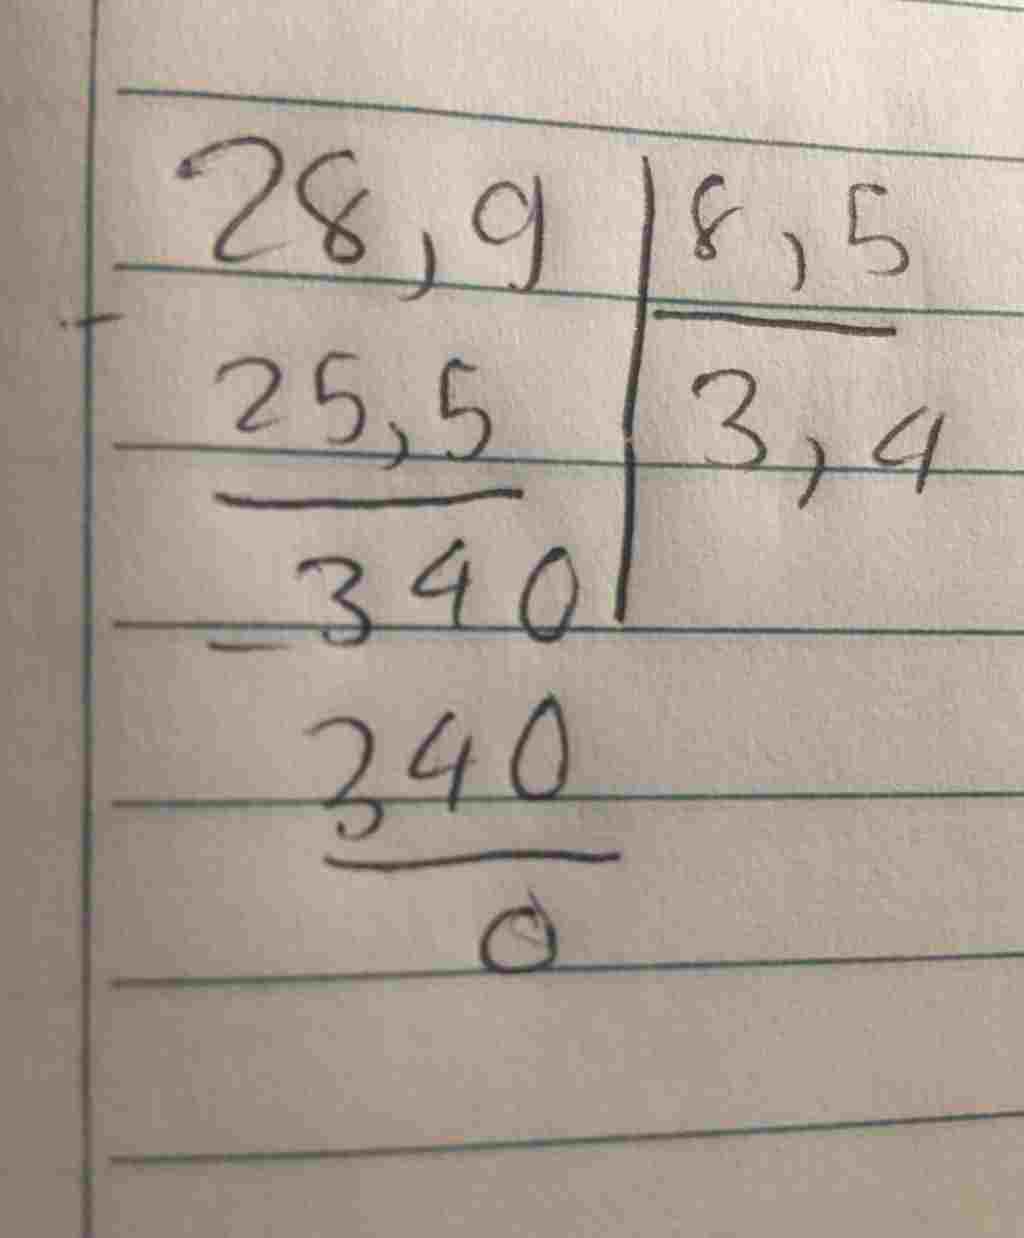 28,9 | 8,5
- 25,5 | 3,4
- 340
340
0